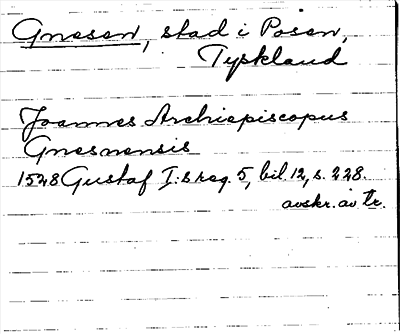 Gnesen, stad i Posen,
Tyskland
Joannes Archiepiscopus
Gnesnensis
1528 Gustaf I:s reg. 5, bil. 12, s. 228.
avskr. av Tr.